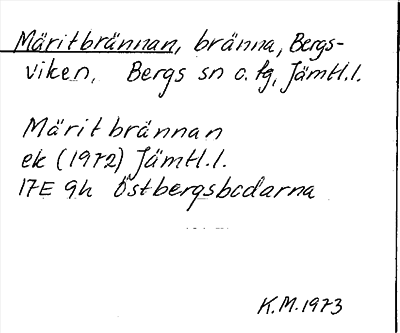 Märitbrännan, bränna, Bergs-
viken, Bergs sn o. fg, Jämtl.l.
Märitbrännan
ek (1972) Jämtl.l.
17E 9h Östbergsbodarna
K.M. 1973